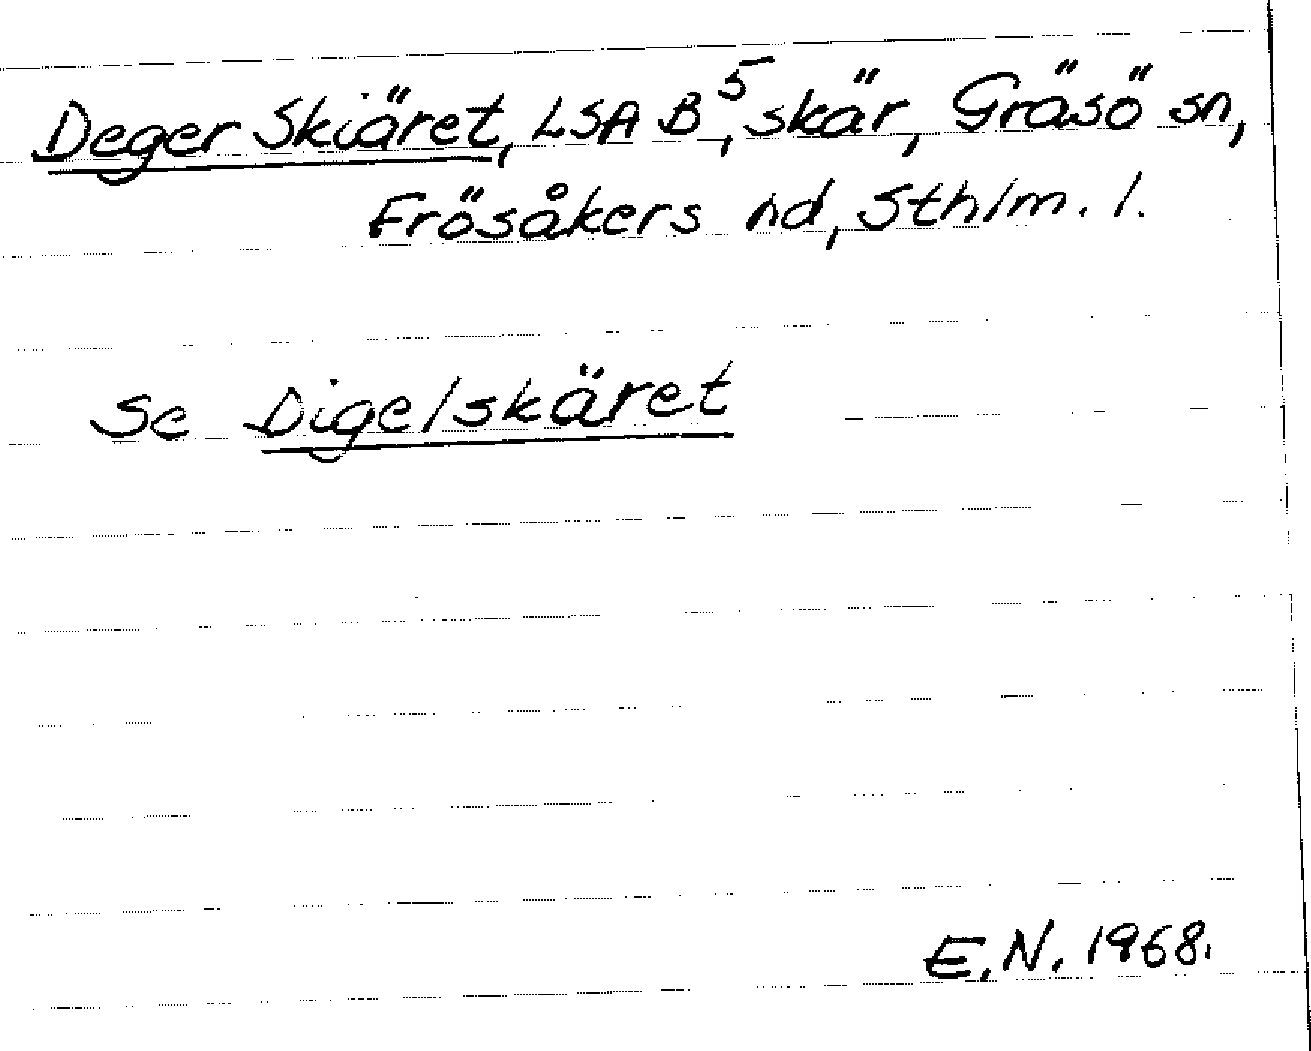 Deger Skiäret, LSA B⁵, skär, Gräsö sn,
Frösåkers hd, Sthlm. l.
Se Digelskäret
E.N. 1968.